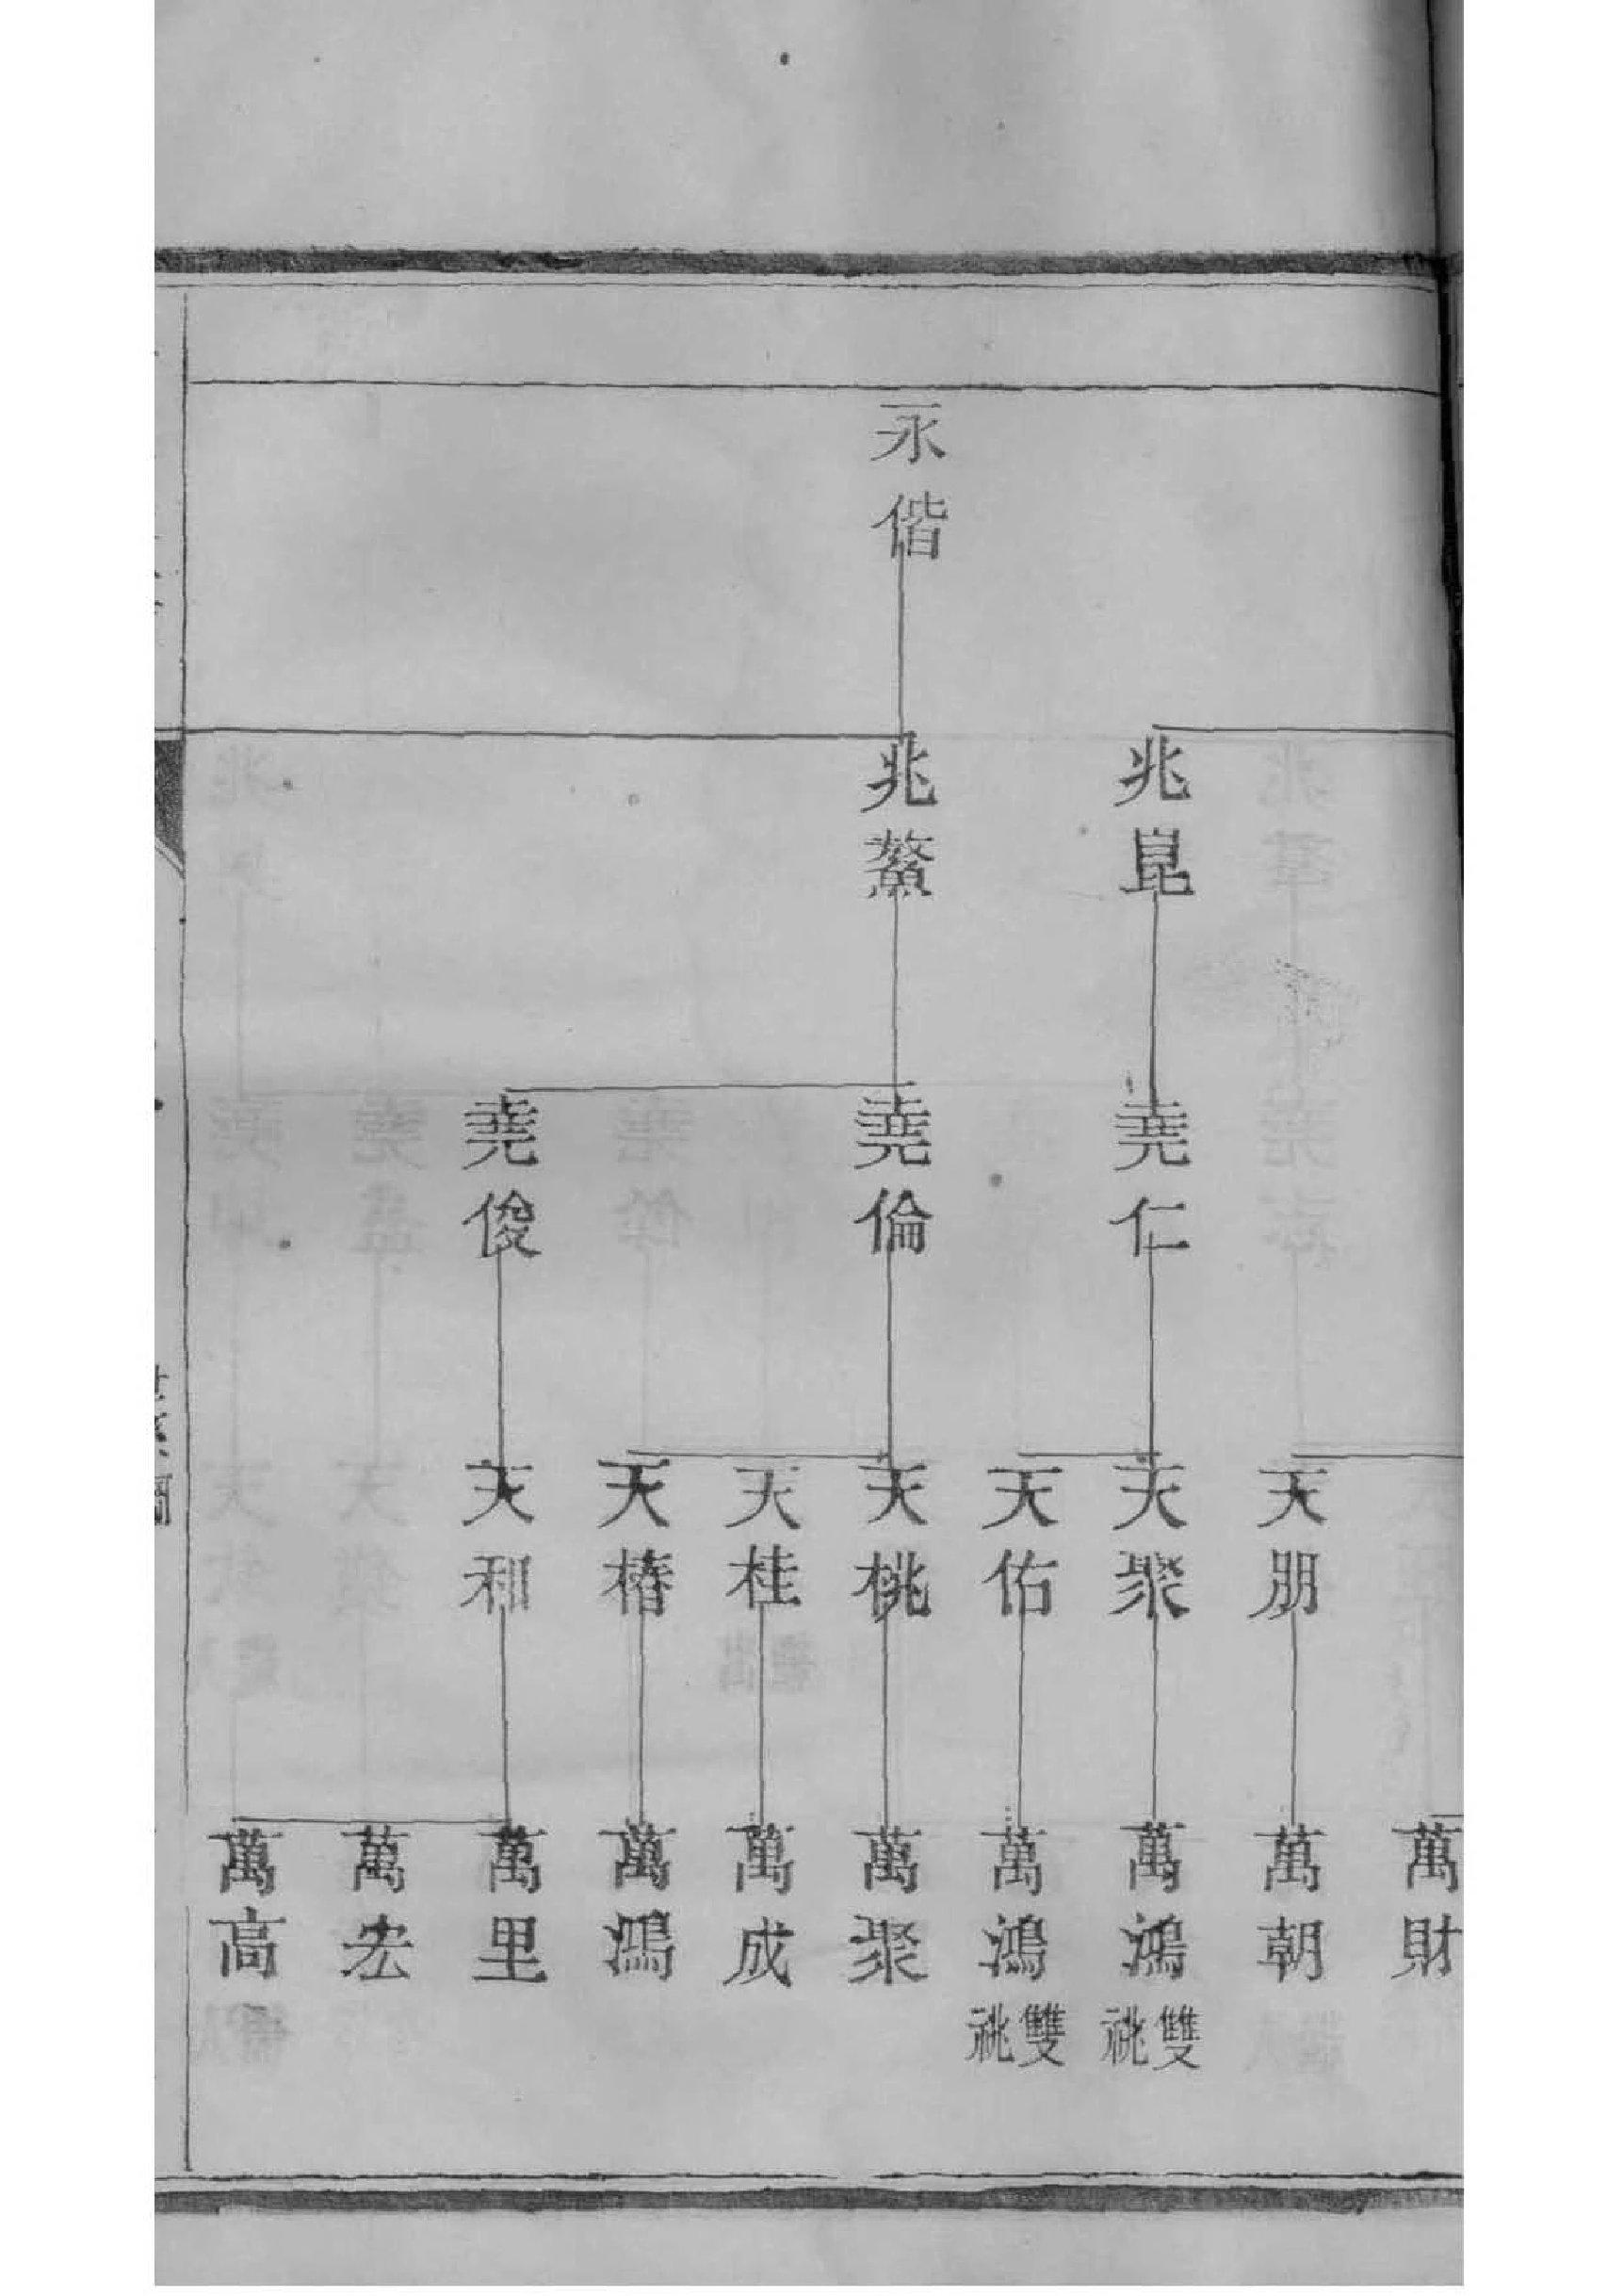 永偕
兆崑
兆鰲
堯仁
堯倫
堯俊
天朋
天聚
天佑
天桃
天桂
天椿
天和
萬財
萬朝
萬鴻雙祧
萬鴻雙祧
萬聚
萬成
萬鴻
萬里
萬宏
萬高